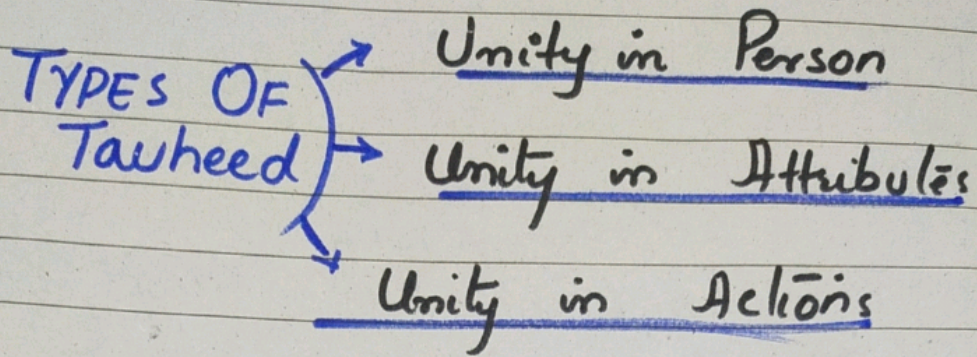 TYPES OF
Tauheed
Unity in Person
Unity in Attributes
Unity in Actions